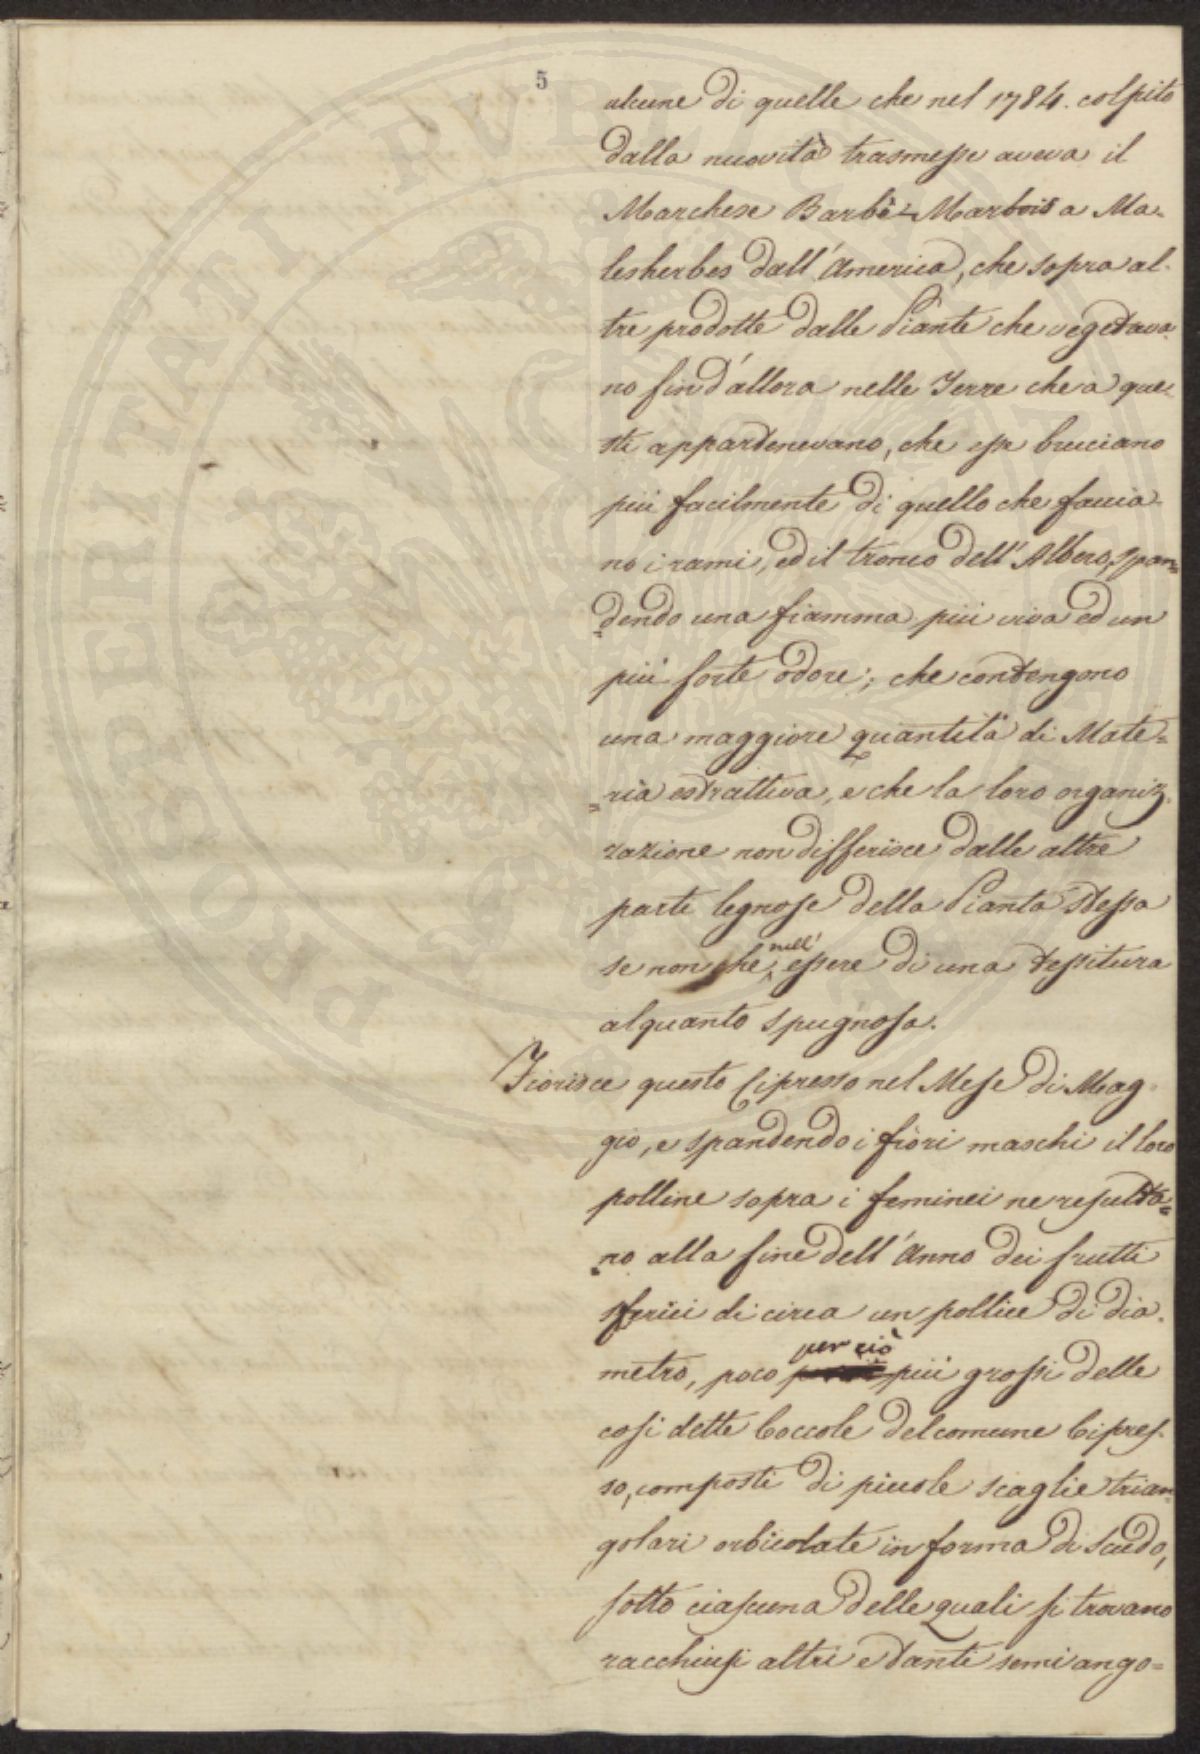 5
alcune di quelle che nel 1784. colpito
dalla nuovità trasmesse aveva il
Marchese Barbè-Marbois a Ma-
lesherbes dall'America, che sopra al-
tre prodotte dalle Piante che vegetava-
no fin d'allora nelle Terre che a que-
sti appartenevano, che esse bruciano
più facilmente di quello che faccia-
no i rami, ed il tronco dell'Albero, span=
dendo una fiamma più viva ed un
più forte odore; che contengono
una maggiore quantità di Mate=
=ria estrattiva, e che la loro organiz-
zazione non differisce dalle altre
parti legnose della Pianta stessa
se non che nell' essere di una tessitura
alquanto spugnosa.
Fiorisce questo Cipresso nel Mese di Mag-
gio, e spandendo i fiori maschi il loro
polline sopra i feminei ne resulta=
no alla fine dell'Anno dei frutti
sferici di circa un pollice di dia-
metro, poco per ciò più grossi delle
così dette Coccole del comune Cipres-
so, composti di piccole scaglie trian-
golari orbicolate in forma di scudo,
sotto ciascuna delle quali si trovano
racchiusi altri e tanti semi ango=
PROSPERITATI PVBLICAE